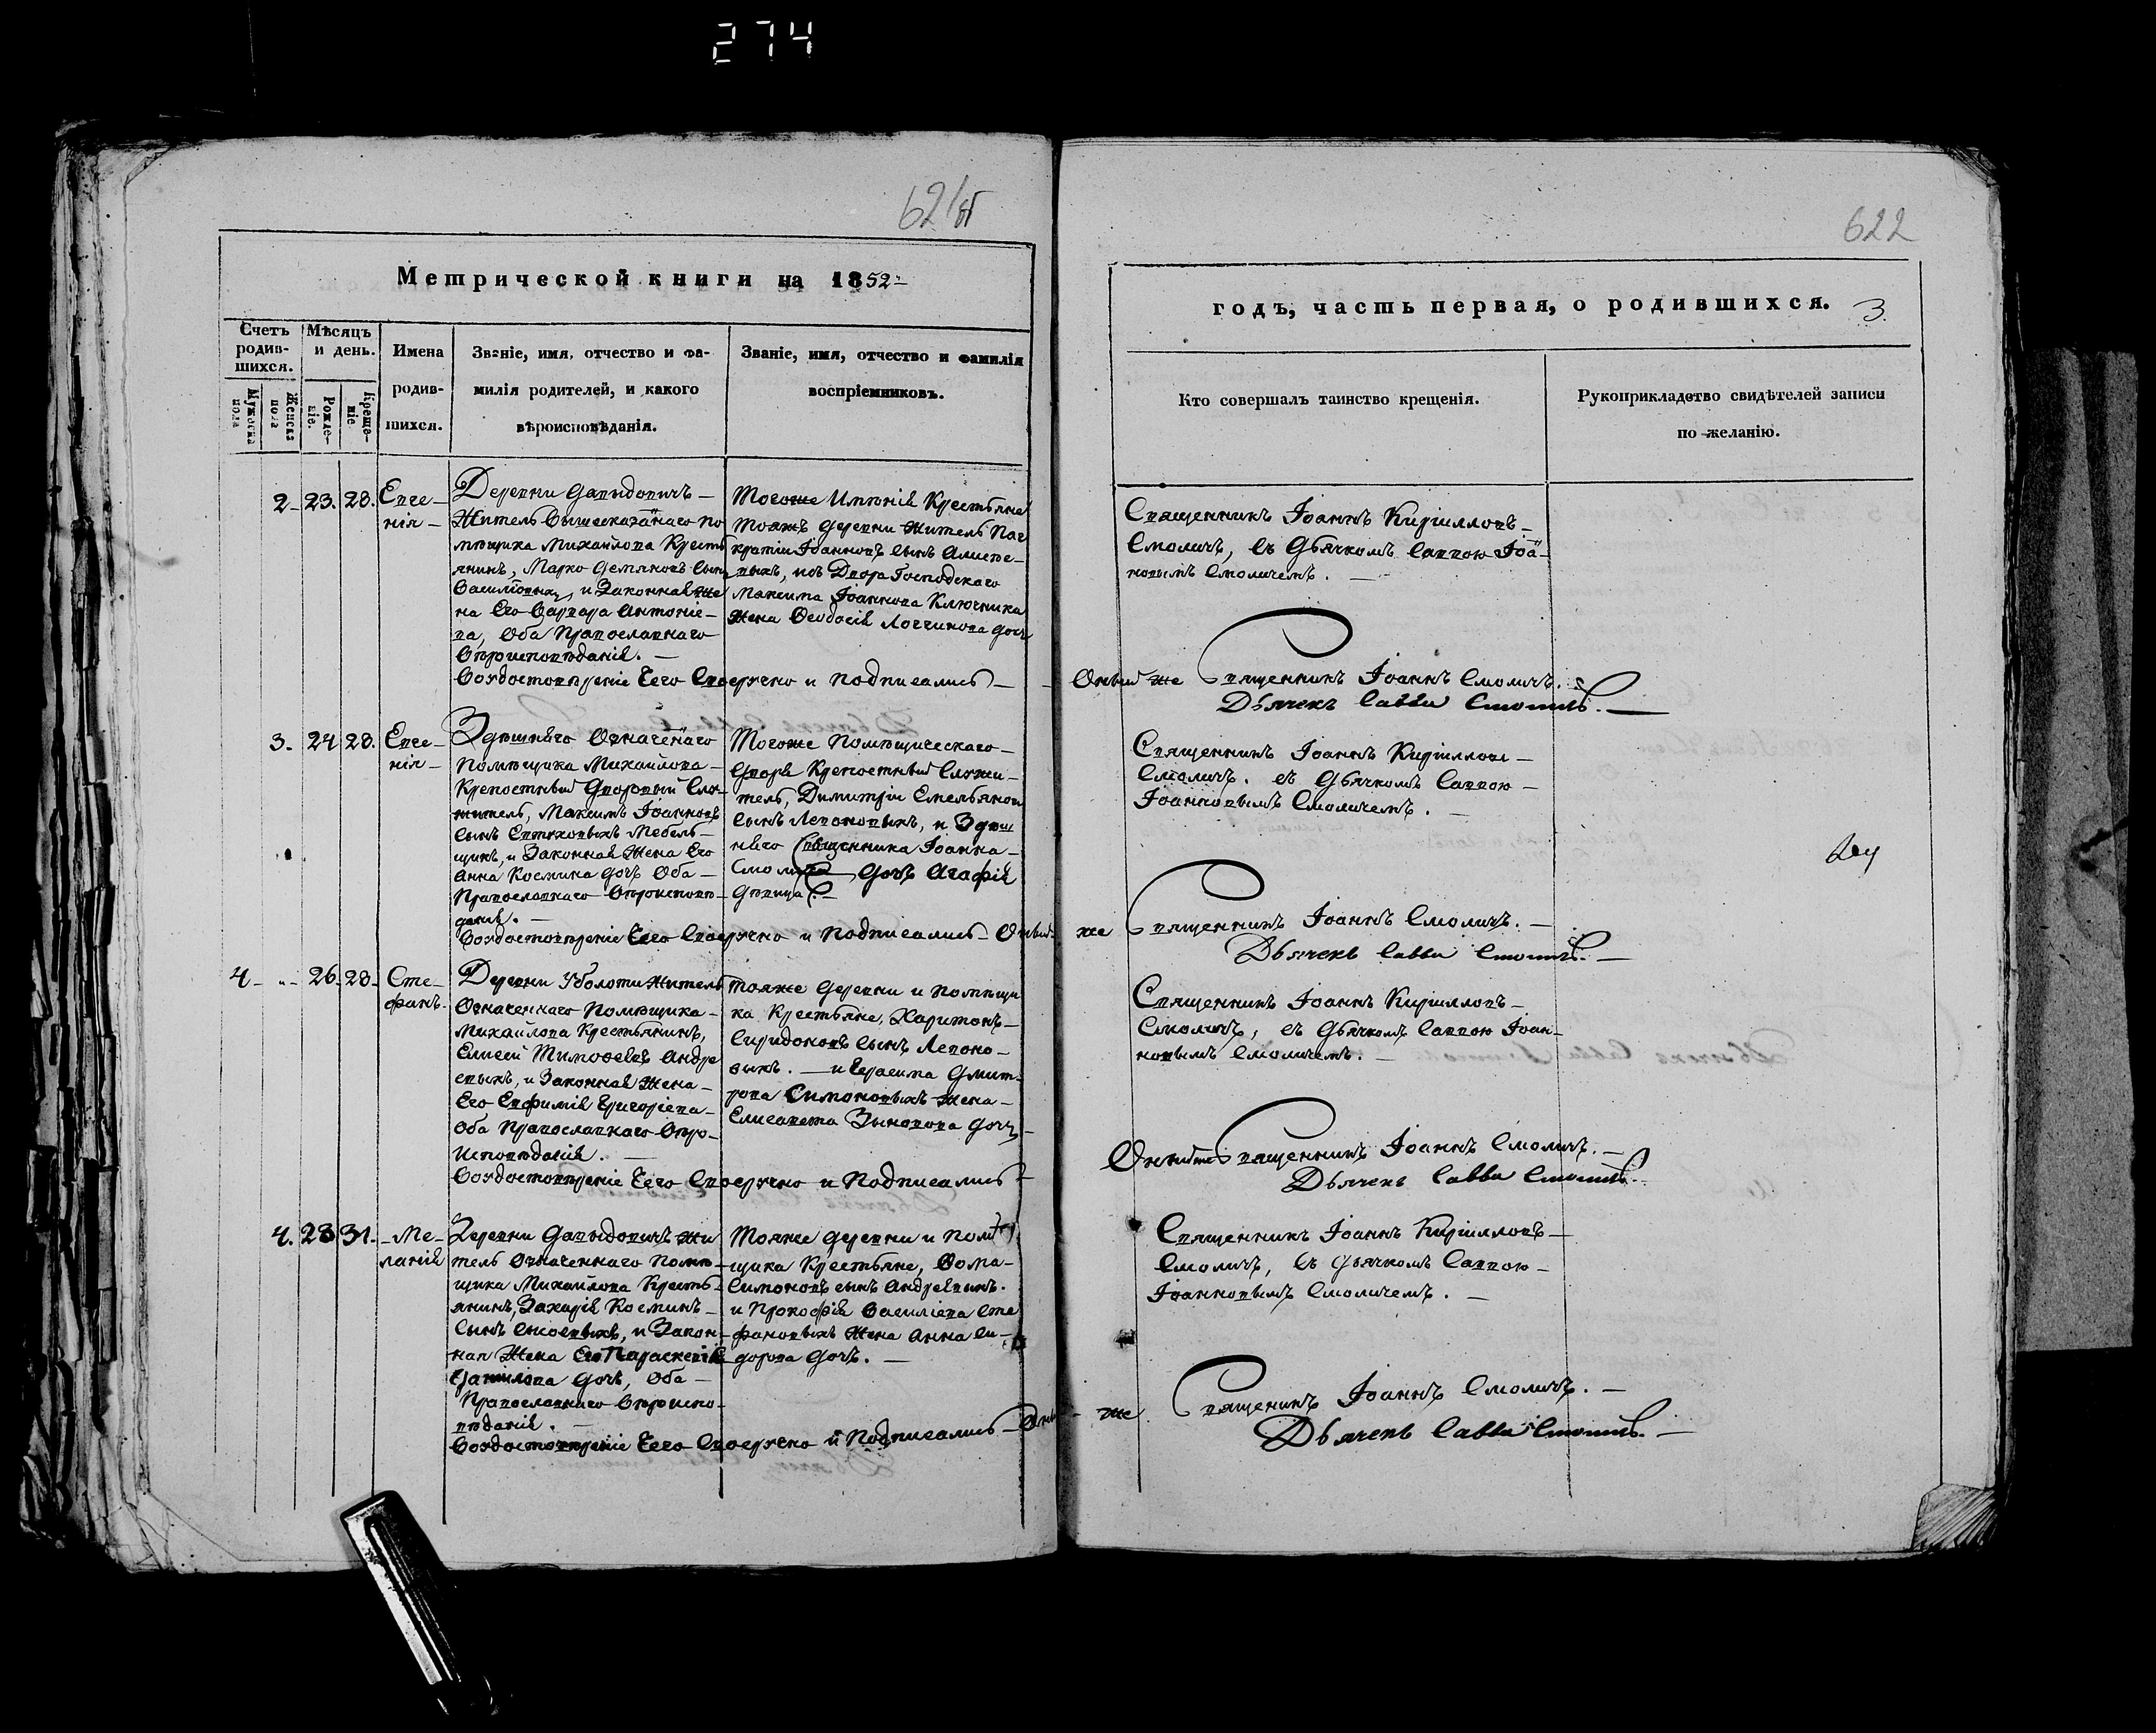 274
621об
622
Метрической книги на 1852-
годъ, часть первая, о родившихся. 3.
Счетъ родив-шихся.
Мужеска пола
Женска пола
Мѣсяцъ и день.
Рожде-ніе.
Креще-ніе
Имена
родив-
шихся.
Званіе, имя, отчество и фа-
милія родителей, и какого
вѣроисповѣданія.
Званіе, имя, отчество и фамилія
воспріемниковъ.
Кто совершалъ таинство крещенія.
Рукоприкладство свидѣтелей записи
по желанію.
2- 23. 28. Евге-
нія-
Деревни Давыдовичъ-
Житель Вышесказаннаго по
мѣщика Михайлова Кресть
янинъ, Марко Демяновъ Сынъ
и Законная Же
на Его Варвара Антоніе-
ва, Оба Православнаго
Вѣроисповѣданія.-
Тогоже Имѣнія Крестьяне
Тояжъ деревни Житель Пан
кратіи Іоанновъ сынъ
изъ Двора Господскаго
Максима Іоаннова Ключника
Жена Ѳеодосія Логгинова дочь
Священникъ Іоаннъ Кирилловъ-
Смоличъ, съ Дьячкомъ Саввою Іоа-
новымъ Смоличемъ.-
Воздостовѣреніе Сего Своеручно и Подписались- Оный же Священникъ Іоаннъ Смоличъ.
Дьячекъ Савва Смоличъ.-
3. 24 28. Евге-
нія-
Здѣшняго Означеннаго
Помѣщика Михайлова-
Крепостный Дворовый Слу-
житель, Максимъ Іоанновъ
Сынъ Мебель-
щикъ, и Законная Жена Его
Анна Космина дочь Оба-
Православнаго Вѣроисповѣ-
данія.-
Тогоже Помѣщическаго-
Двора Крепостный Служи-
тель, Димитріи Емельяновъ
Сынъ Левоновыхъ, и Здѣш
няго Священника Іоанна-
Смолича Дочь Агафія
Дѣвица.-
Священникъ Іоаннъ Кирилловъ-
Смоличъ. съ Дьячкомъ Саввою-
Іоанновымъ Смоличемъ.-
Воздостовѣреніе Сего Своеручно и Подписались- Оный же Священникъ Іоаннъ Смоличъ.-
Дьячекъ Савва Смоличъ.-
4- -"- 26. 28- Сте-
фанъ.
Деревни Уболоти Житель
Означеннаго Помѣщика-
Михайлова Крестьянинъ,
Елисей Тимофеевъ Андре
евыхъ, и Законная Жена-
Его Евфимія Григоріева-
Оба Православнаго Вѣро-
Исповѣданія.-
Тояже деревни и Помѣщи
ка Крестьяне, Харитонъ-
Спиридоновъ Сынъ Левоно-
выхъ.- и Герасима Дмит-
рова Симоновыхъ Жена-
Елисавета Зыновова Дочь-
Священникъ Іоаннъ Кирилловъ-
Смоличъ, съ Дьячкомъ Саввою Іоан-
новымъ Смоличемъ.-
Воздостовѣреніе Сего Своеручно и Подписались- Оный же Священникъ Іоаннъ Смоличъ.-
Дьячекъ Савва Смоличъ.-
4. 28 31. -Ме-
ланія
Деревни Давыдовичъ Жи
тель Означеннаго Помѣ-
щика Михайлова Кресть-
янинъ, Захарія Косминъ-
Сынъ Сысоевыхъ, и Закон-
ная Жена Его Параскевія
Даніилова Дочь, Оба-
Православнаго Вѣроиспо-
вѣданія.-
Тояже деревни и Помѣ
щика Крестьяне, Ѳома-
Симоновъ сынъ Андреевыхъ.
и Прокофія Василіева Сте
фановыхъ Жена Анна Си-
дорова Дочь.-
Священникъ Іоаннъ Кирилловъ-
Смоличъ, съ Дьячкомъ Саввою-
Іоанновымъ Смоличемъ.-
Воздостовѣреніе Сего Своеручно и Подписались- Оный же Священникъ Іоаннъ Смоличъ.-
Дьячекъ Савва Смоличъ.-